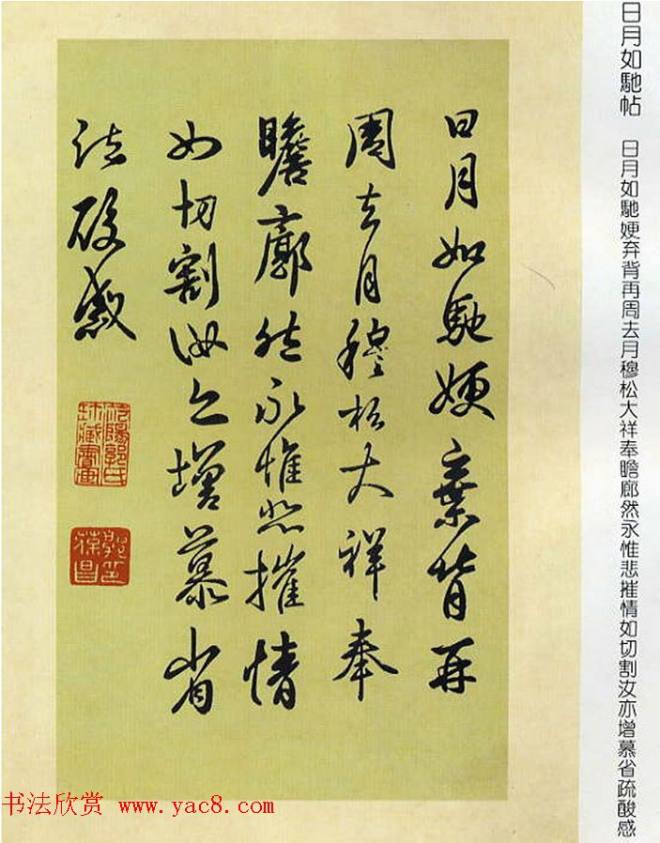 日月如馳帖
日月如馳㛐弃背再周去月穆松大祥奉瞻廊然永惟悲摧情如切割汝亦增慕省疏酸感
日月如馳㛐棄背再
周去月穆松大祥奉
瞻廓然永惟悲摧情
如切割汝亦增慕省
疏酸感
书法欣赏 www.yac8.com